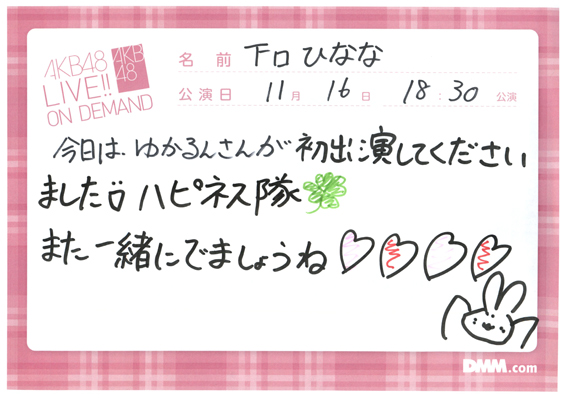 AKB48
LIVE!!
ON DEMAND
AKB
48
名前 下口ひなな
公演日 11月 16日 18:30 公演
今日は、ゆかるんさんが初出演してください
ました ハピネス隊
また一緒にでましょうね
DMM.com